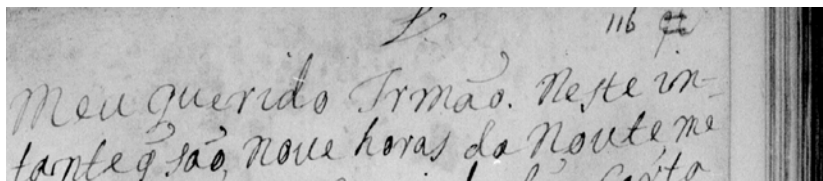 116
Meu querido Irmão. Neste in-
tante q̃ são, nove horas da Noute, me
Carta